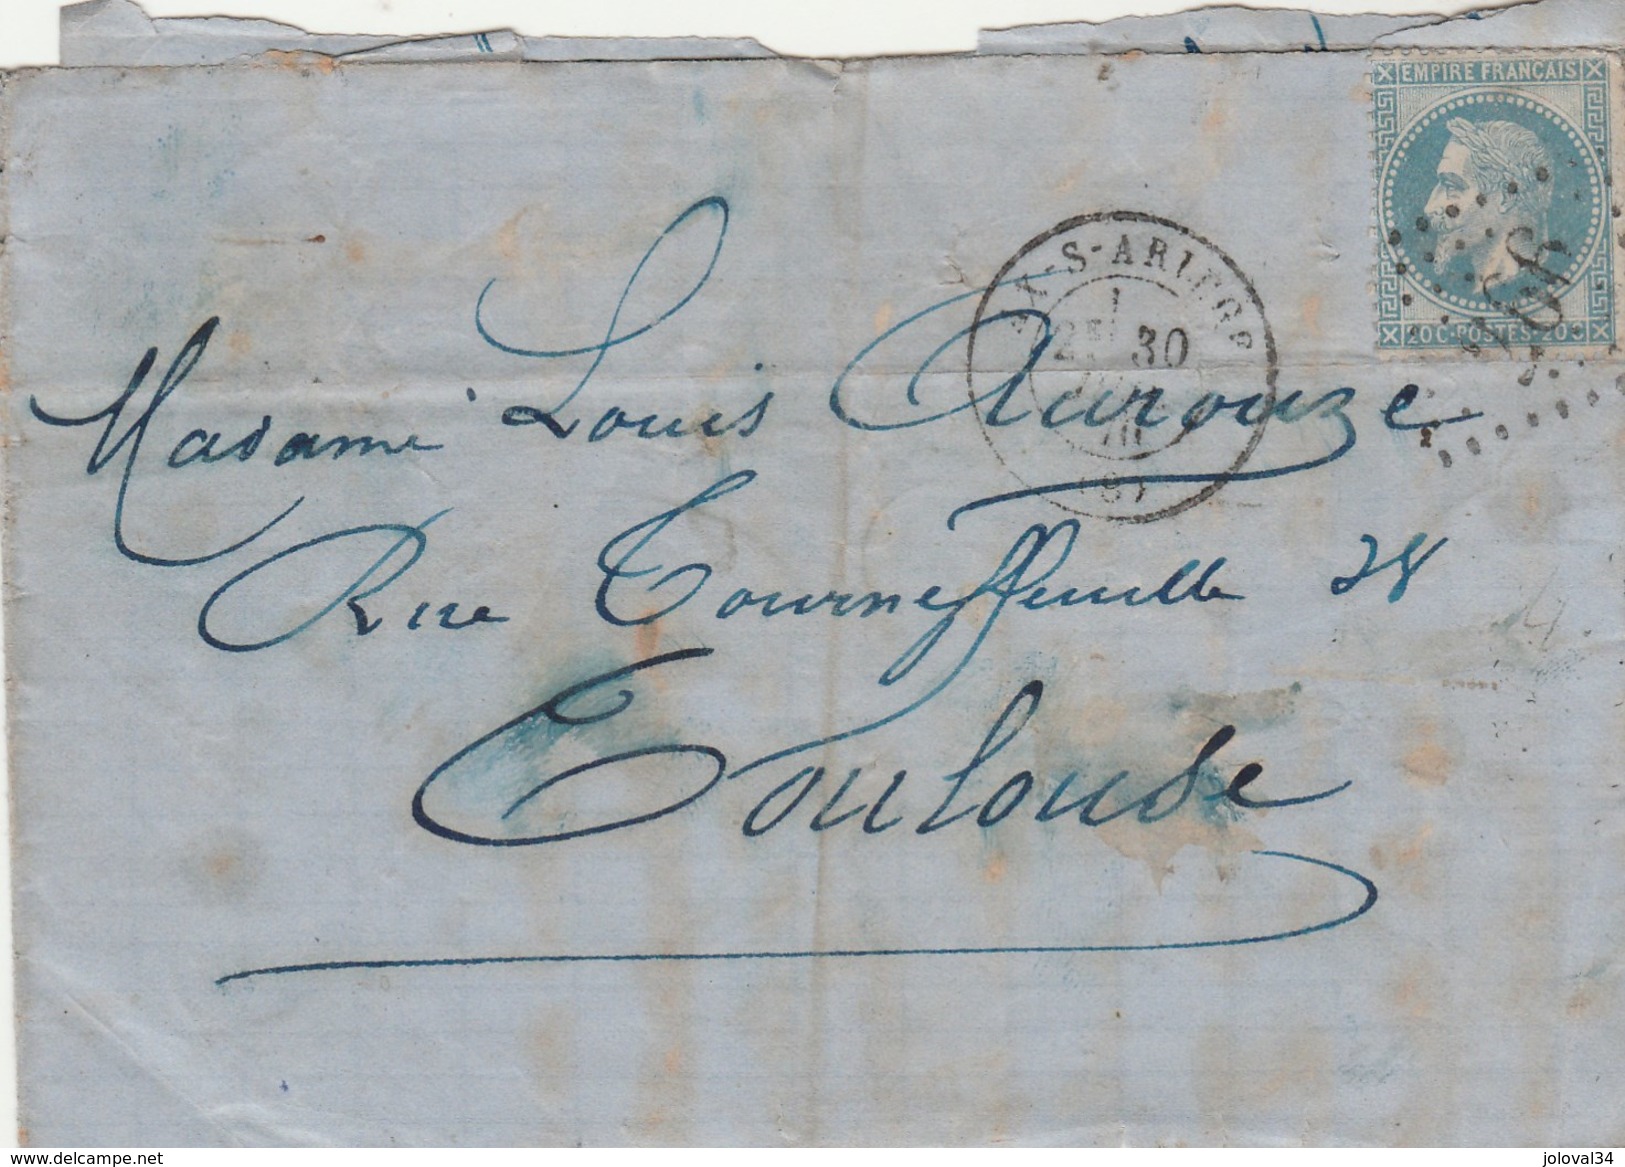 EMPIRE FRANÇAIS
20 C · POSTES · 20 C
AX-S-ARIEGE
2E 30
70
(8)
Madame Louis Aurouze
Rue Tourneffeuille 28
Toulouse
www.delcampe.net
joloval34